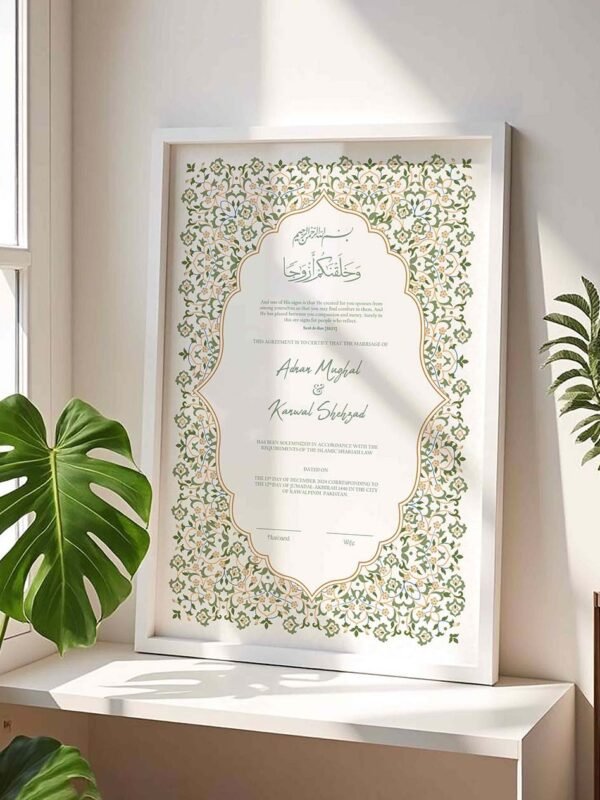 بسم الله الرحمن الرحيم
وَخَلَقْنَٰكُمْ أَزْوَٰجًا
And one of His signs is that He created for you spouses from
among yourselves so that you may find comfort in them. And
He has placed between you compassion and mercy. Surely in
this are signs for people who reflect.
Ar-Rum [30:21]
THIS AGREEMENT IS TO CERTIFY THAT THE MARRIAGE OF
Adnan Mughal
&
Kanwal Shehzad
HAS BEEN SOLEMNIZED IN ACCORDANCE WITH THE
REQUIREMENTS OF THE ISLAMIC SHARIAH LAW
DATED ON
THE 13th DAY OF DECEMBER 2024 CORRESPONDING TO
THE 12th DAY OF JUMADAL-AKHIRAH 1446 IN THE CITY
OF RAWALPINDI PAKISTAN.
Husband Wife